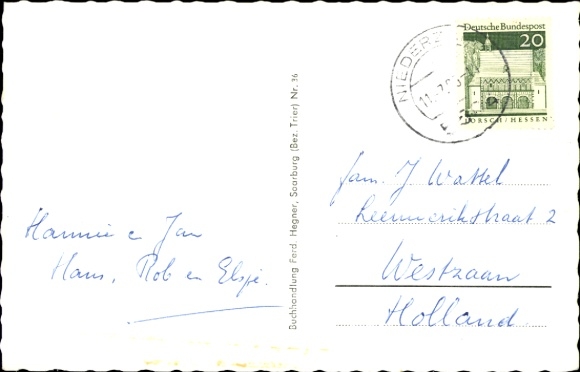 Deutsche Bundespost
20
LORSCH/HESSEN
Hannie e Jan
Hans, Rob en Elsje.
Buchhandlung Ferd. Hegner, Saarburg (Bez. Trier) Nr. 36
fam. J. Wattel
Westzaan
Holland